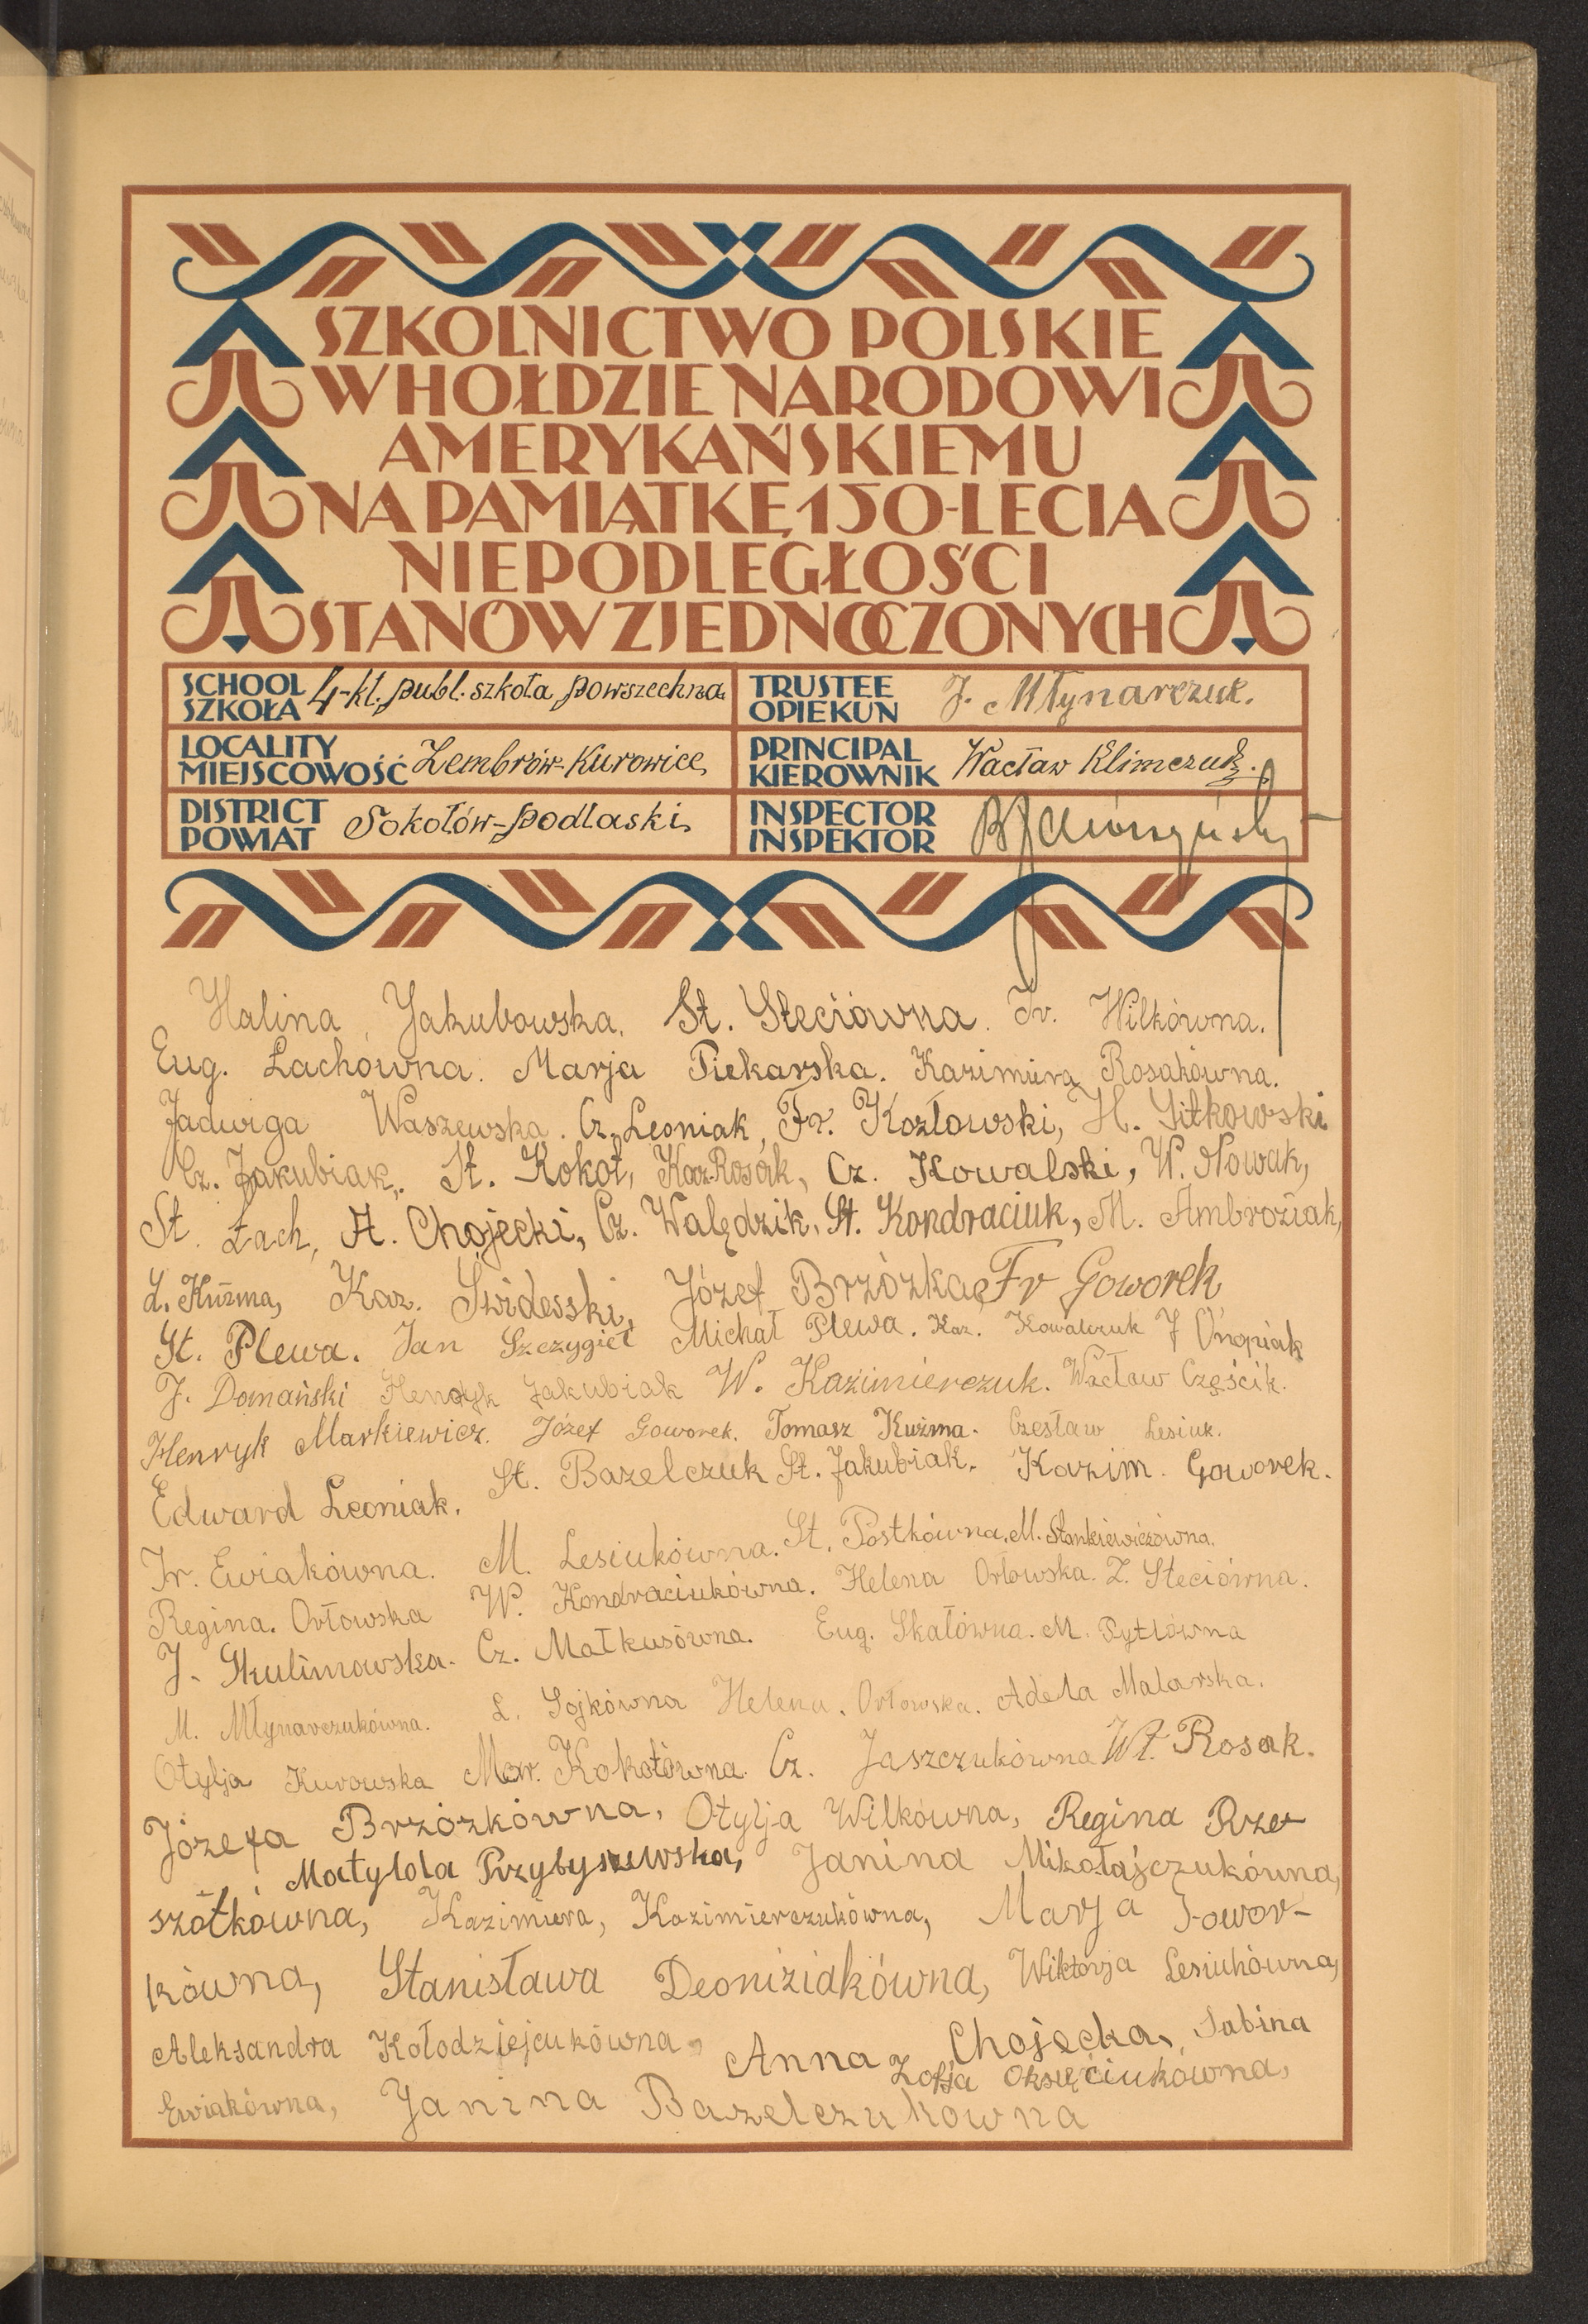 SZKOLNICTWO POLSKIE
W HOŁDZIE NARODOWI
AMERYKAŃSKIEMU
NA PAMIĄTKĘ 150-LECIA
NIEPODLEGŁOŚCI
STANÓW ZJEDNOCZONYCH
SCHOOL SZKOŁA 4-kl. publ. szkoła powszechna
TRUSTEE OPIEKUN J. Młynarczuk.
LOCALITY MIEJSCOWOŚĆ Zembrów-Kurowice
PRINCIPAL KIEROWNIK Wacław Klimczuk.
DISTRICT POWIAT Sokołów-Podlaski
INSPECTOR INSPEKTOR
Halina Jakubowska. St. Steciówna. Ir. Wilkówna.
Eug. Lachówna. Marja Piekarska. Kazimiera Rosakówna.
Jadwiga Waszewska. Cz. Leoniak, Fr. Kozłowski, H. Sitkowski
Cz. Jakubiak, St. Kokot, Kaz. Rosak, Cz. Kowalski, W. Nowak,
St. Łach, A. Chojecki, Cz. Walędzik, St. Kondraciuk, M. Ambroziak,
L. Kuźma, Kaz. Świderski, Józef Brzózka, Fr Goworek
St. Plewa. Jan Szczygieł Michał Plewa. Kaz. Kowalczuk J Onopiak
J. Domański Henryk Jakubiak W. Kazimierczuk. Wacław Częścik.
Henryk Markiewicz. Józef Goworek. Tomasz Kuźma. Czesław Lesiuk.
Edward Leoniak. St. Bazelczuk St. Jakubiak. Kazim. Goworek.
Ir. Ewiakówna. M. Lesiukówna. St. Postkówna. M. Stankiewiczówna.
Regina. Orłowska W. Kondraciukówna. Helena Orłowska. Z. Steciówna.
J. Skulimowska. Cz. Małkusówna. Eug. Skałówna. M. Pytlówna
M. Młynarczukówna. L. Sojkówna Helena. Orłowska. Adela Malarska.
Otylja Kurowska Mar. Kokotówna. Cz. Jaszczukówna Wł. Rosak.
Józefa Brzózkówna, Otylja Wilkówna, Regina Rze-
Matylda Przybyszewska, Janina Mikołajczukówna,
szótkówna, Kazimiera, Kazimierczukówna, Marja Gowor-
kówna, Stanisława Deoniziakówna, Wiktorja Lesiukówna,
Aleksandra Kołodziejcukówna, Anna Chojecka, Sabina
Ewiakówna, Janina Bazelczukówna Zofja Oksięciukówna,